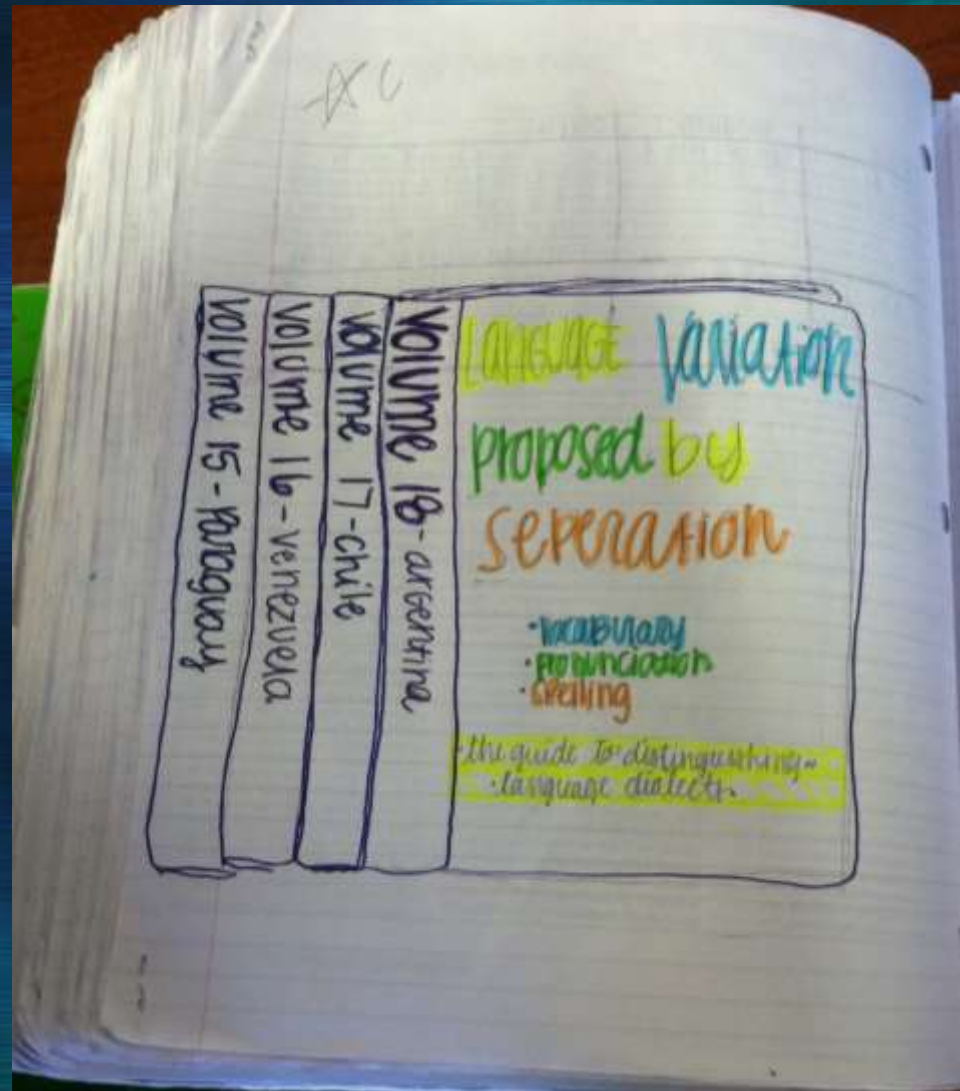 Volume 15 - Paraguay
Volume 16 - venezuela
volume 17 - chile
Volume 18 - argentina
Language Variation
proposed by
seperation
• vocabulary
• pronunciation
• spelling
• the guide to distinguishing~
• language dialects.